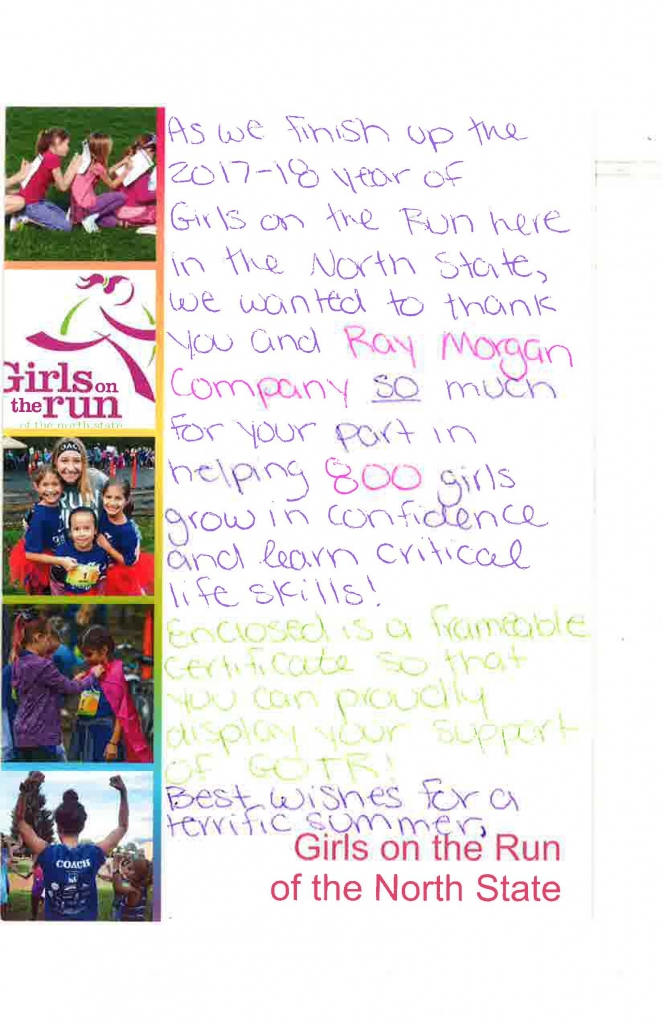 As we finish up the
2017-18 year of
Girls on the Run here
in the North State,
we wanted to thank
you and Ray Morgan
Company so much
for your part in
helping 800 girls
grow in confidence
and learn critical
life skills!
Enclosed is a frameable
certificate so that
you can proudly
display your support
of GOTR!
Best wishes for a
terrific summer,
Girls on the Run
of the North State
Girls on
the run
of the north state
COACH
RUN
1
COACH